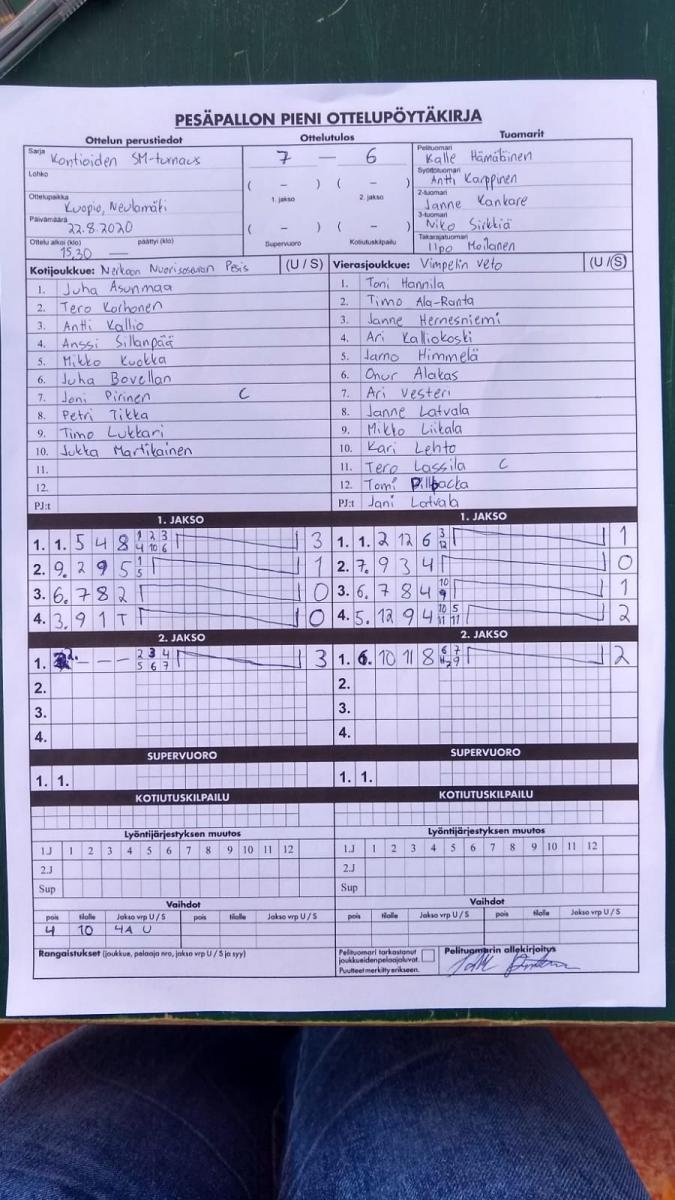 PESÄPALLON PIENI OTTELUPÖYTÄKIRJA
Ottelun perustiedot
Sarja Kontioiden SM-turnaus
Lohko
Ottelupaikka
Kuopio, Neulamäki
Päivämäärä
22.8.2020
Ottelu alkoi (klo) päättyi (klo)
15.30 —
Ottelutulos
7 — 6
( – ) ( – )
1. jakso 2. jakso
( – ) ( – )
Supervuoro Kotiutuskilpailu
Tuomarit
Pelituomari
Kalle Hämäläinen
Syöttötuomari
Antti Karppinen
2-tuomari
Janne Kankare
3-tuomari
Niko Sirkkiä
Takarajatuomari
Ilpo Moilanen
Kotijoukkue: Nerkoon Nuorisoseuran Pesis (U / S)
1. Juha Asunmaa
2. Tero Korhonen
3. Antti Kallio
4. Anssi Sillanpää
5. Mikko Kuokka
6. Juha Bovellan
7. Joni Pirinen C
8. Petri Tikka
9. Timo Lukkari
10. Jukka Martikainen
11.
12.
PJ:t
Vierasjoukkue: Vimpelin Veto (U / S)
1. Toni Hannila
2. Timo Ala-Ranta
3. Janne Hernesniemi
4. Ari Kalliokoski
5. Jarno Himmelä
6. Onur Alakas
7. Ari Vesteri
8. Janne Latvala
9. Mikko Liikala
10. Kari Lehto
11. Tero Lassila C
12. Tomi Pillbacka
PJ:t Jani Latvala
1. JAKSO
1. 1. 5 4 8 1 2 3 3
4 10 6
2. 9. 2 9 5 1 1
5
3. 6. 7 8 2 0
4. 3. 9 1 T 0
2. JAKSO
1. 2. – – – 2 3 4 3
5 6 7
2.
3.
4.
SUPERVUORO
1. 1.
KOTIUTUSKILPAILU
1. JAKSO
1. 1. 2 12 6 3 1
12
2. 7. 9 3 4 0
3. 6. 7 8 4 10 1
9
4. 5. 12 9 4 10 5 2
11 11
2. JAKSO
1. 6. 10 11 8 6 7 2
9
2.
3.
4.
SUPERVUORO
1. 1.
KOTIUTUSKILPAILU
Lyöntijärjestyksen muutos
1.J 1 2 3 4 5 6 7 8 9 10 11 12
2.J
Sup
Vaihdot
pois tilalle Jakso vrp U / S pois tilalle Jakso vrp U / S
4 10 4A U
Rangaistukset (joukkue, pelaaja nro, jakso vrp U / S ja syy)
Lyöntijärjestyksen muutos
1.J 1 2 3 4 5 6 7 8 9 10 11 12
2.J
Sup
Vaihdot
pois tilalle Jakso vrp U / S pois tilalle Jakso vrp U / S
Pelituomari tarkastanut
joukkueiden pelaajaluvat.
Puutteet merkitty erikseen.
Pelituomarin allekirjoitys